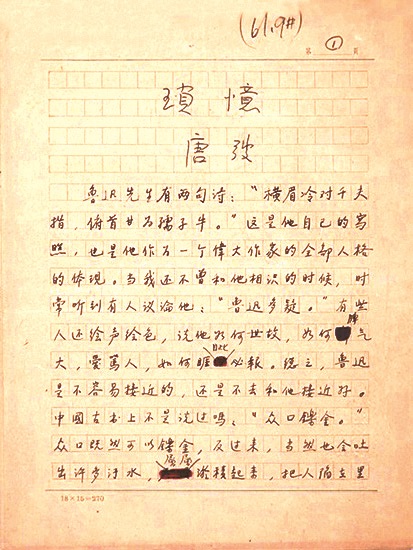 (61.9#)
第 ① 頁
瑣憶
唐弢
魯迅先生有两句诗：“横眉冷对千夫
指，俯首甘为孺子牛。”这是他自己的寫
照，也是他作为一个偉大作家的全部人格
的体現。当我还不曾和他相识的时候，时
常听到有人议论他：“鲁迅多疑。”有些
人还绘声绘色，说他如何世故，如何脾气
大，愛罵人，如何睚眦必報。总之，鲁迅
是不容易接近的，还是不去和他接近好。
中國古书上不是说过吗：“众口鑠金。”
众口既然可以鑠金，反过来，当然也会吐
出许多汙水，淤積起来，把人陷在里
18×15=270